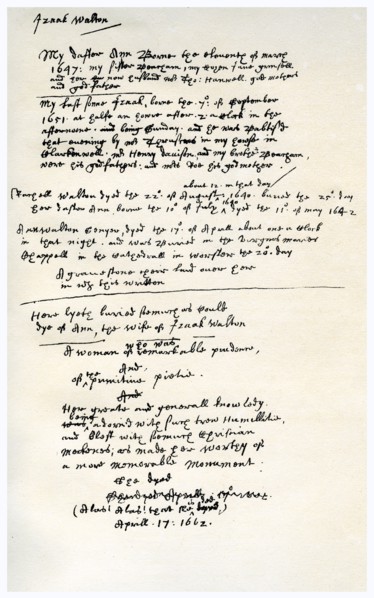 Izaak Walton
My dafter Ann borne the eleventh of march
1647: my sister Beacham, my cosen Jane Grinsell
and her now husband mr Tho: Hanwell, god mothers
and god father
My last sonne Izaak, borne the 7º. of September
1651. at halfe an howre after. 2 a clock in the
afternoone. and being Sunday. and he was baptised
that evening by mr Thruscross in my howse in
Clarkenwell. mr Henry Davison and my brother Beacham
were his godfathers, and mrs Roe his god mother.
about 12. in that day
Rachell Walton dyed the 22º. of August 1640. buried the 25º. day
her dafter Ann borne the 10º of July 1640 dyed the 11º. of may 1642
Ann Walton dyed the 17º. of Aprill about one a clock
in that night. and was buried in the Virgins maries
Chappell in the cathedrall in Worster the 20º. day
A gravestone layd over her
in wch this written
Here lyeth buried soe much as could
dye of Ann, the wife of Izaak Walton
who was
A woman of remarkable prudence,
And
of the primitive pietie.
And
Her greate and generall knowledg
being adorn'd with such trew Humillitie,
and blest with soe much Christian
meekenes, as made her worthy of
a more memorable Monument:
She dyed
(Alas! Alas! that she is dead)
Aprill. 17: 1662.